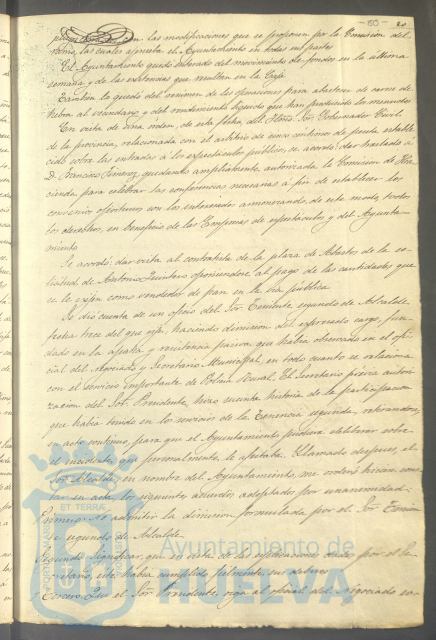 -150- 20
con las modificaciones que se proponen por la Comisión del
ramo, las cuales aprueba el Ayuntamiento en todas sus partes
El Ayuntamiento quedó enterado del movimiento de fondos en la última
semana y de las existencias que resultan en la Caja
También lo quedó del resúmen de las operaciones para abastecer de carne de
hebra al vecindario y del rendimiento líquido que han producido los menudos
En vista de una orden, de esta fecha del Iltmo Sor. Gobernador Civil
de la provincia, relacionada con el arbitrio de cinco céntimos de peseta estable
cido sobre las entradas á los espectáculos públicos, se acordó: dar traslado á
D. Francisco Jimenez, quedando ampliamente autorizada la Comisión de Ha
cienda para celebrar las conferencias necesarias á fin de establecer los
convenios oportunos con los interesados armonizando, de este modo, todos
los derechos, en beneficio de las Empresas de espectáculos y del Ayunta-
miento
Se acordó: dar vista al contratista de la plaza de Abastos de la so-
licitud de Antonio Quintero oponiendose al pago de las cantidades que
se le exijen como vendedor de pan en la via pública
Se dió cuenta de un oficio del Sor Teniente segundo de Alcalde
fecha trece del que rije, haciendo dimisión del expresado cargo, fun-
dado en la apatia y resistencia pasiva que habia observado en el ofi-
cial del Negociado y Secretario Municipal, en todo cuanto se relaciona
con el servicio importante de Policia Rural. El Secretario prévia autori-
zación del Sor. Presidente, hizo sucinta historia de la participación
que habia tenido en los servicios de la Tenencia segunda, retirandose,
en acto continuo, para que el Ayuntamiento pudiera deliberar sobre
el incidente que personalmente le afectaba. Llamado despues, el
Sor Alcalde, en nombre del Ayuntamiento, me ordenó hiciera cons-
tar en acta los siguientes acuerdos, adoptados por unanimidad.
Primero: No admitir la dimisión formulada por el Sor Tenien
te segundo de Alcalde
Segundo: Significar, que en vista de las esplicaciones dadas por el Se-
cretario, este habia cumplido fielmente sus deberes
Tercero: Que el Sor Presidente, exija al oficial del Negociado es-
ET TERRAE
Ayuntamiento de
HUELVA